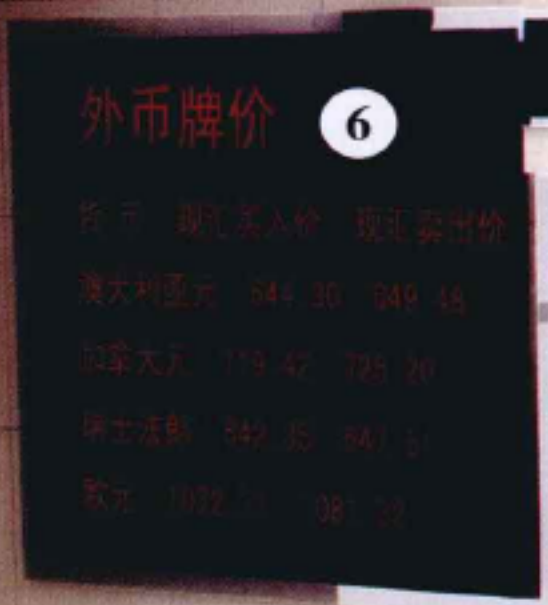 外币牌价 6
货币 现汇买入价 现汇卖出价
澳大利亚元 644.30 649.48
加拿大元 719.42 725.20
瑞士法郎 642.35
欧元